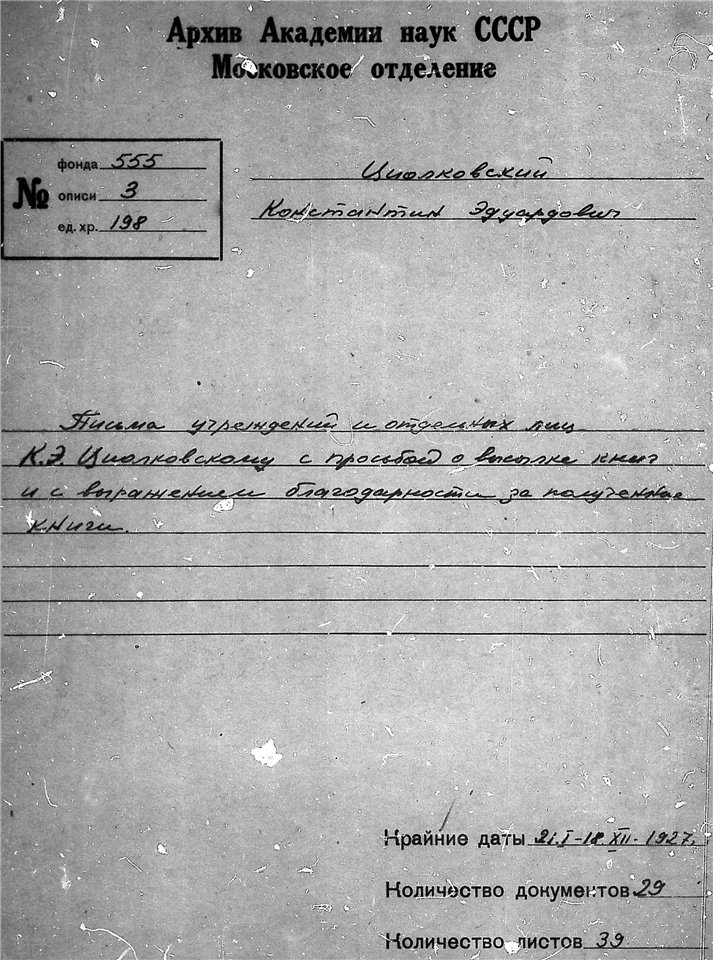 Архив Академии наук СССР
Московское отделение
№
фонда 555
описи 3
ед. хр. 198
Циолковский
Константин Эдуардович
Письма учреждений и отдельных лиц
К.Э. Циолковскому с просьбой о высылке книг
и с выражением благодарности за полученные
книги.
Крайние даты 21.I-18.XII-1927.
Количество документов 29
Количество листов 39